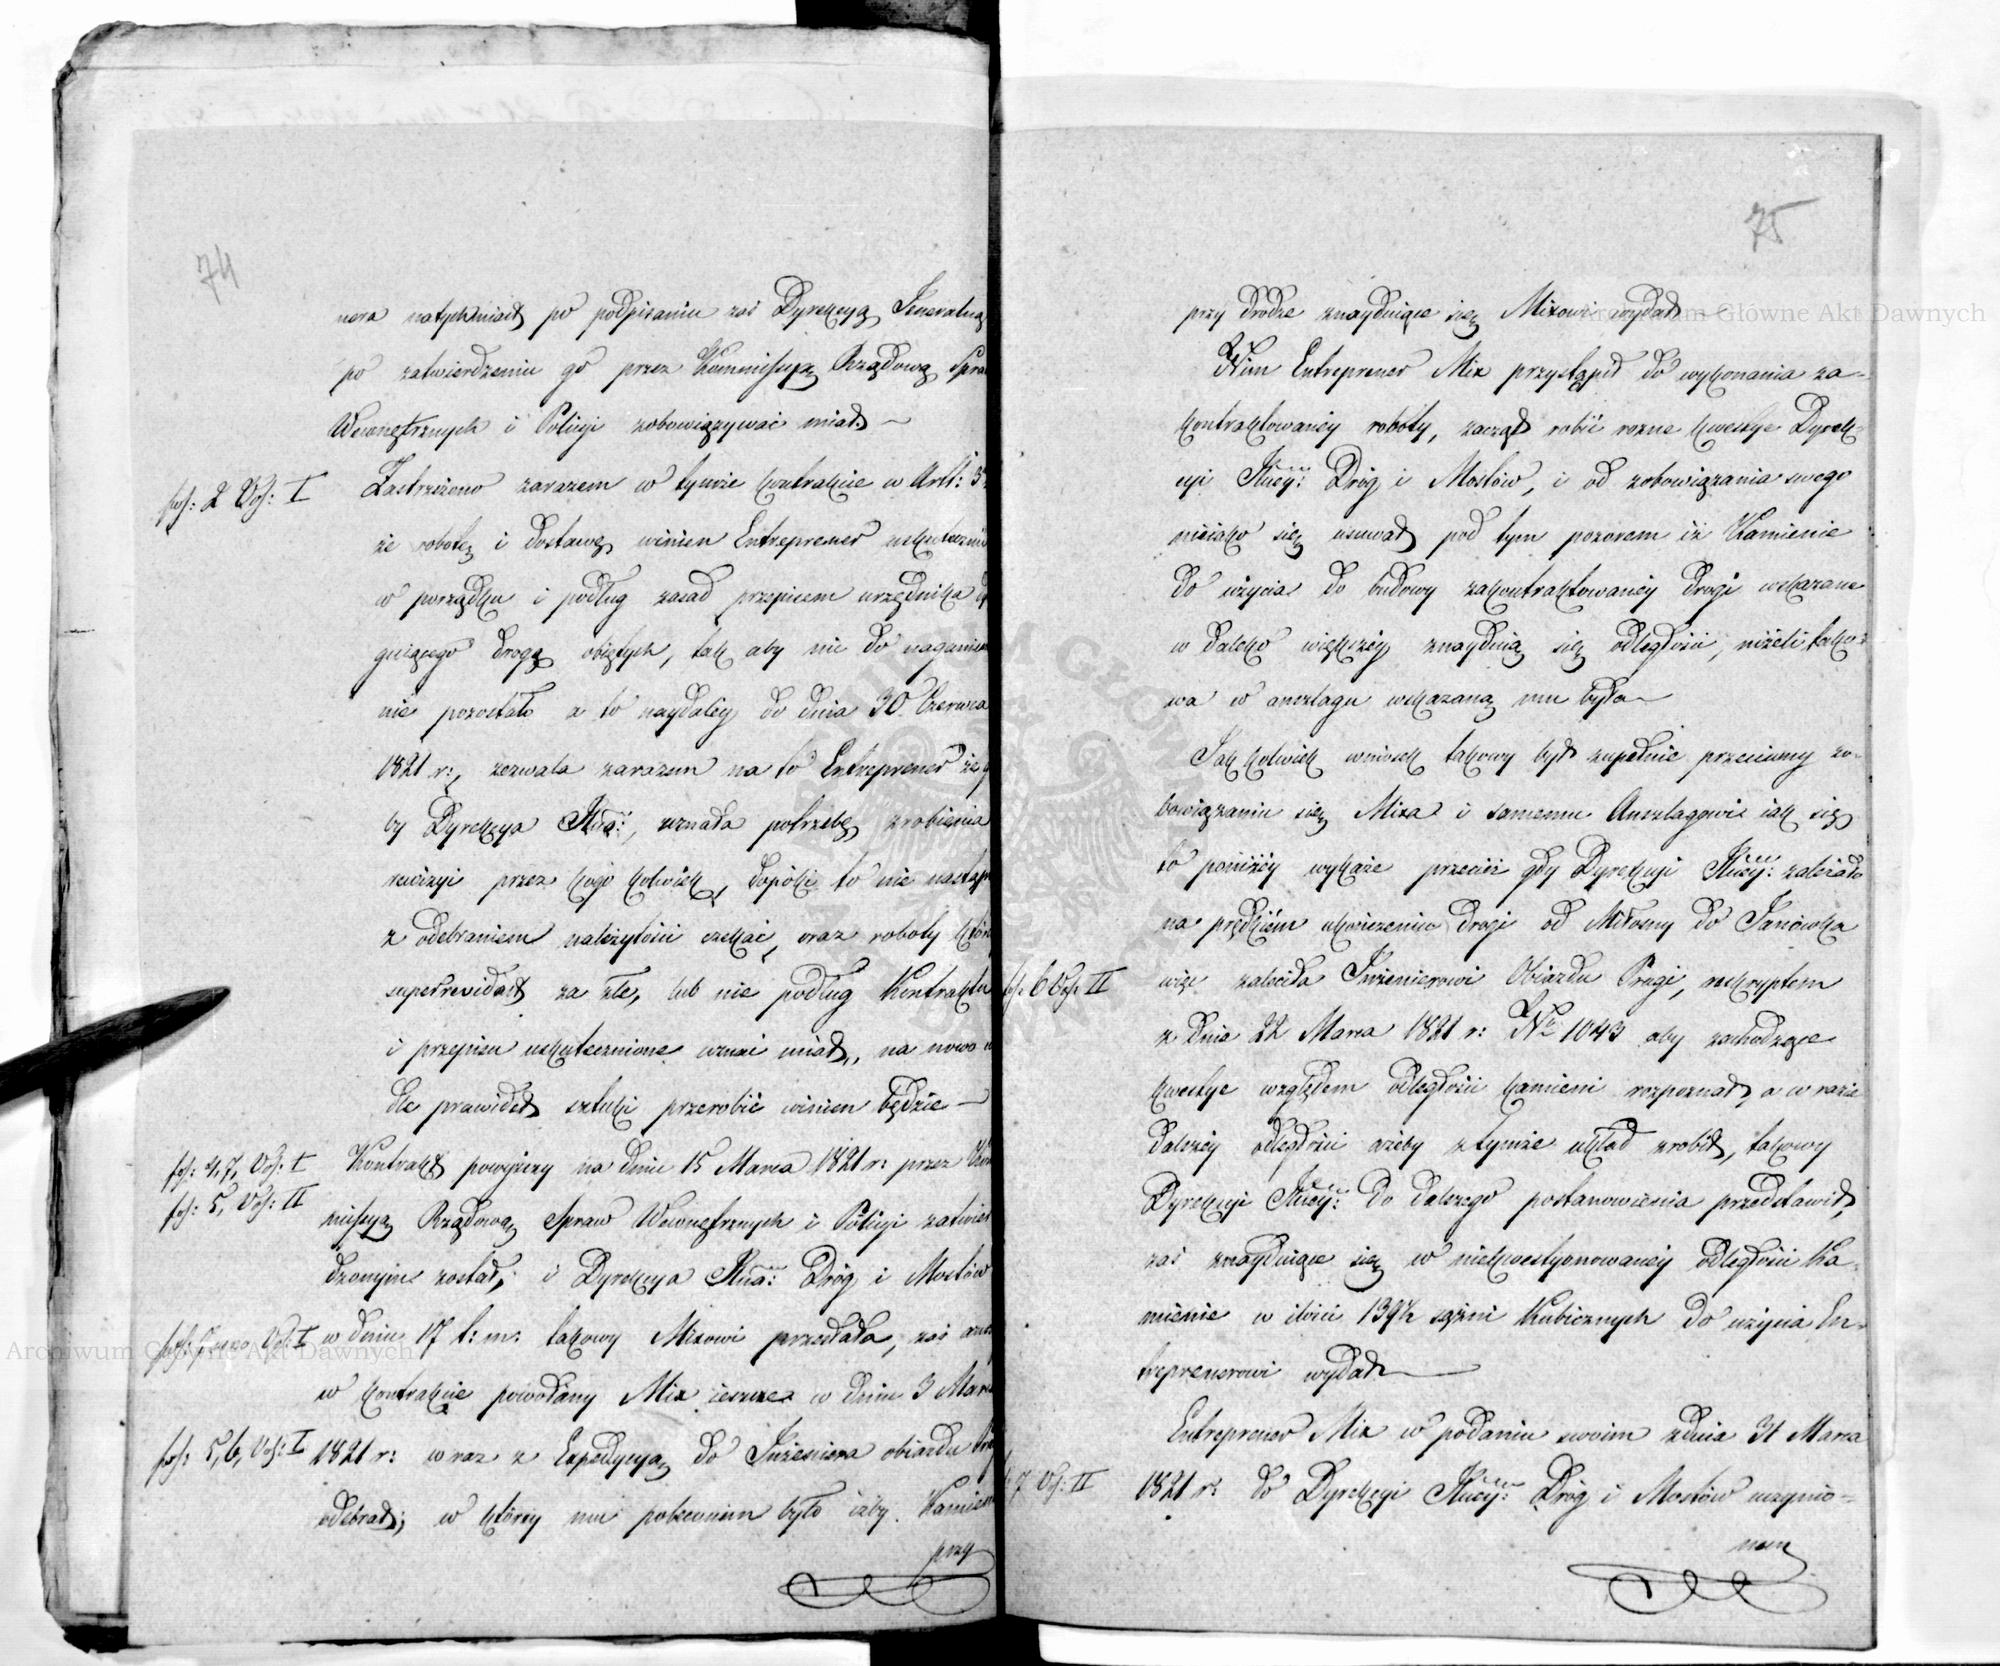 74
nera natychmiast po podpisaniu zaś Dyrekcyą Jeneralną
po zatwierdzeniu go przez Kommissyą Rządową Spra
Wewnętrznych i Policyi zobowiązywać miał.
fol: 2 Vol: I
Zastrzeżono zarazem w tymże kontrakcie w Artt: 3
że robotę i dostawę winien Entreprener uskuteczni
w porządku i podług zasad przepisem urzędnika
guiącego drogą obiętych, tak aby nic do nagani
nie pozostało a to naydaley do dnia 30 Czerwca
1821 r:, zezwala zarazem na to Entreprener że
by Dyrekcya Jlna:, uznała potrzebę zrobienia
rewizyi przez kogo kolwiek, dopóki to nie nastąpi
z odebraniem należytości czekać, oraz roboty któr
superrewidaut za złe, lub nie podług Kontraktu
i przepisu uskutecznione uznać miał, na nowo
dle prawideł sztuki przerobić winien będzie
fol: 4,7, Vol: I
fol: 5, Vol: II
Kontrakt powyższy na dniu 15 Marca 1821 r: przez Kom
missyą Rządową Spraw Wewnętrznych i Policyi zatwier
dzonym został, i Dyrekcya Jlna: Dróg i Mostów
Vol: I
w dniu 17 t: m: takowy Mixowi przesłała, zaś
w kontrakcie powołany Mix ieszcze w dniu 3 Marca
fol: 5,6, Vol: I
1821 r: wraz z Expedycyą do Inżeniera obiazdu
odebrał; w którey mu poleconem było ażby Kamien
przy
75
przy drodze znayduiące się Mixowi wydał
Nim Entreprener Mix przystąpił do wykonania za-
kontraktowaney roboty, zaczął robić rozne kwestye Dyrek-
cyi Jlney: Dróg i Mostów, i od zobowiązania swego
nieiako się usuwał pod tym pozorem iż Kamienie
do użycia do budowy zakontraktowaney drogi wskazane
w daleko większey znayduią się odległości, niżeli tako-
wa w anszlagu wskazaną mu była
Jakkolwiek wniosek takowy był zupełnie przeciwny zo-
bowiązaniu się Mixa i samemu Anszlagowi iak się
to poniżéy wykaże przecież gdy Dyrekcyi Jlney: zależało
na prędkiém ukończeniu drogi od Miłosny do Janówka
fol: 6 Vol: II
więc zaleciła Inżenierowi Obiazdu Pragi, reskryptem
z dnia 22 Marca 1821 r: No 1043 aby zachodzące
kwestye względem odległości kamieni rozpoznał, a w razie
dalszéy odległości ażeby z tymże układ zrobił, takowy
Dyrekcyi Jlney: do dalszego postanowienia przedstawił,
zaś znayduiące się w niekwestyonowaney odległości Ka-
mienie w ilości 139½ sążni Kubicznych do użycia En-
treprenerowi wydał
Entreprener Mix w podaniu swoim z dnia 31 Marca
7 Vol: II
1821 r: do Dyrekcyi Jlney: Dróg i Mostów uczynio-
nem
Archiwum Główne Akt Dawnych